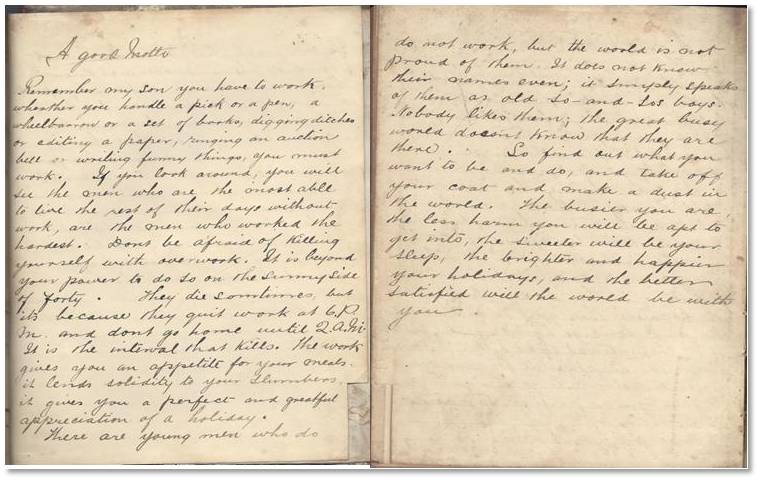 A good Motto
Remember my son you have to work.
wheather you handle a pick or a pen, a
wheelbarrow or a set of books, digging ditches
or editing a paper, ringing an auction
bell or writing funny things, you must
work. If you look around, you will
see the men who are the most able
to live the rest of their days without
work, are the men who worked the
hardest. Dont be afraid of killing
yourself with overwork. It is beyond
your power to do so on the sunny side
of forty. They die sometimes, but
its because they quit work at 6.P.
M. and dont go home until 2.A.M.
It is the interval that kills. The work
gives you an appetite for your meals.
it lends solidity to your slumbers,
it gives you a perfect and greatful
appreciation of a holiday.
There are young men who do
do not work, but the world is not
proud of them. It does not know
their names even; it simply speaks
of them as old So-and-Sos boys.
Nobody likes them; the great busy
world doesnt know that they are
there. So find out what you
want to be and do, and take off
your coat and make a dust in
the world. The busier you are,
the less harm you will be apt to
get into, the sweeter will be your
sleep, the brighter and happier
your holidays, and the better
satisfied will the world be with
you.